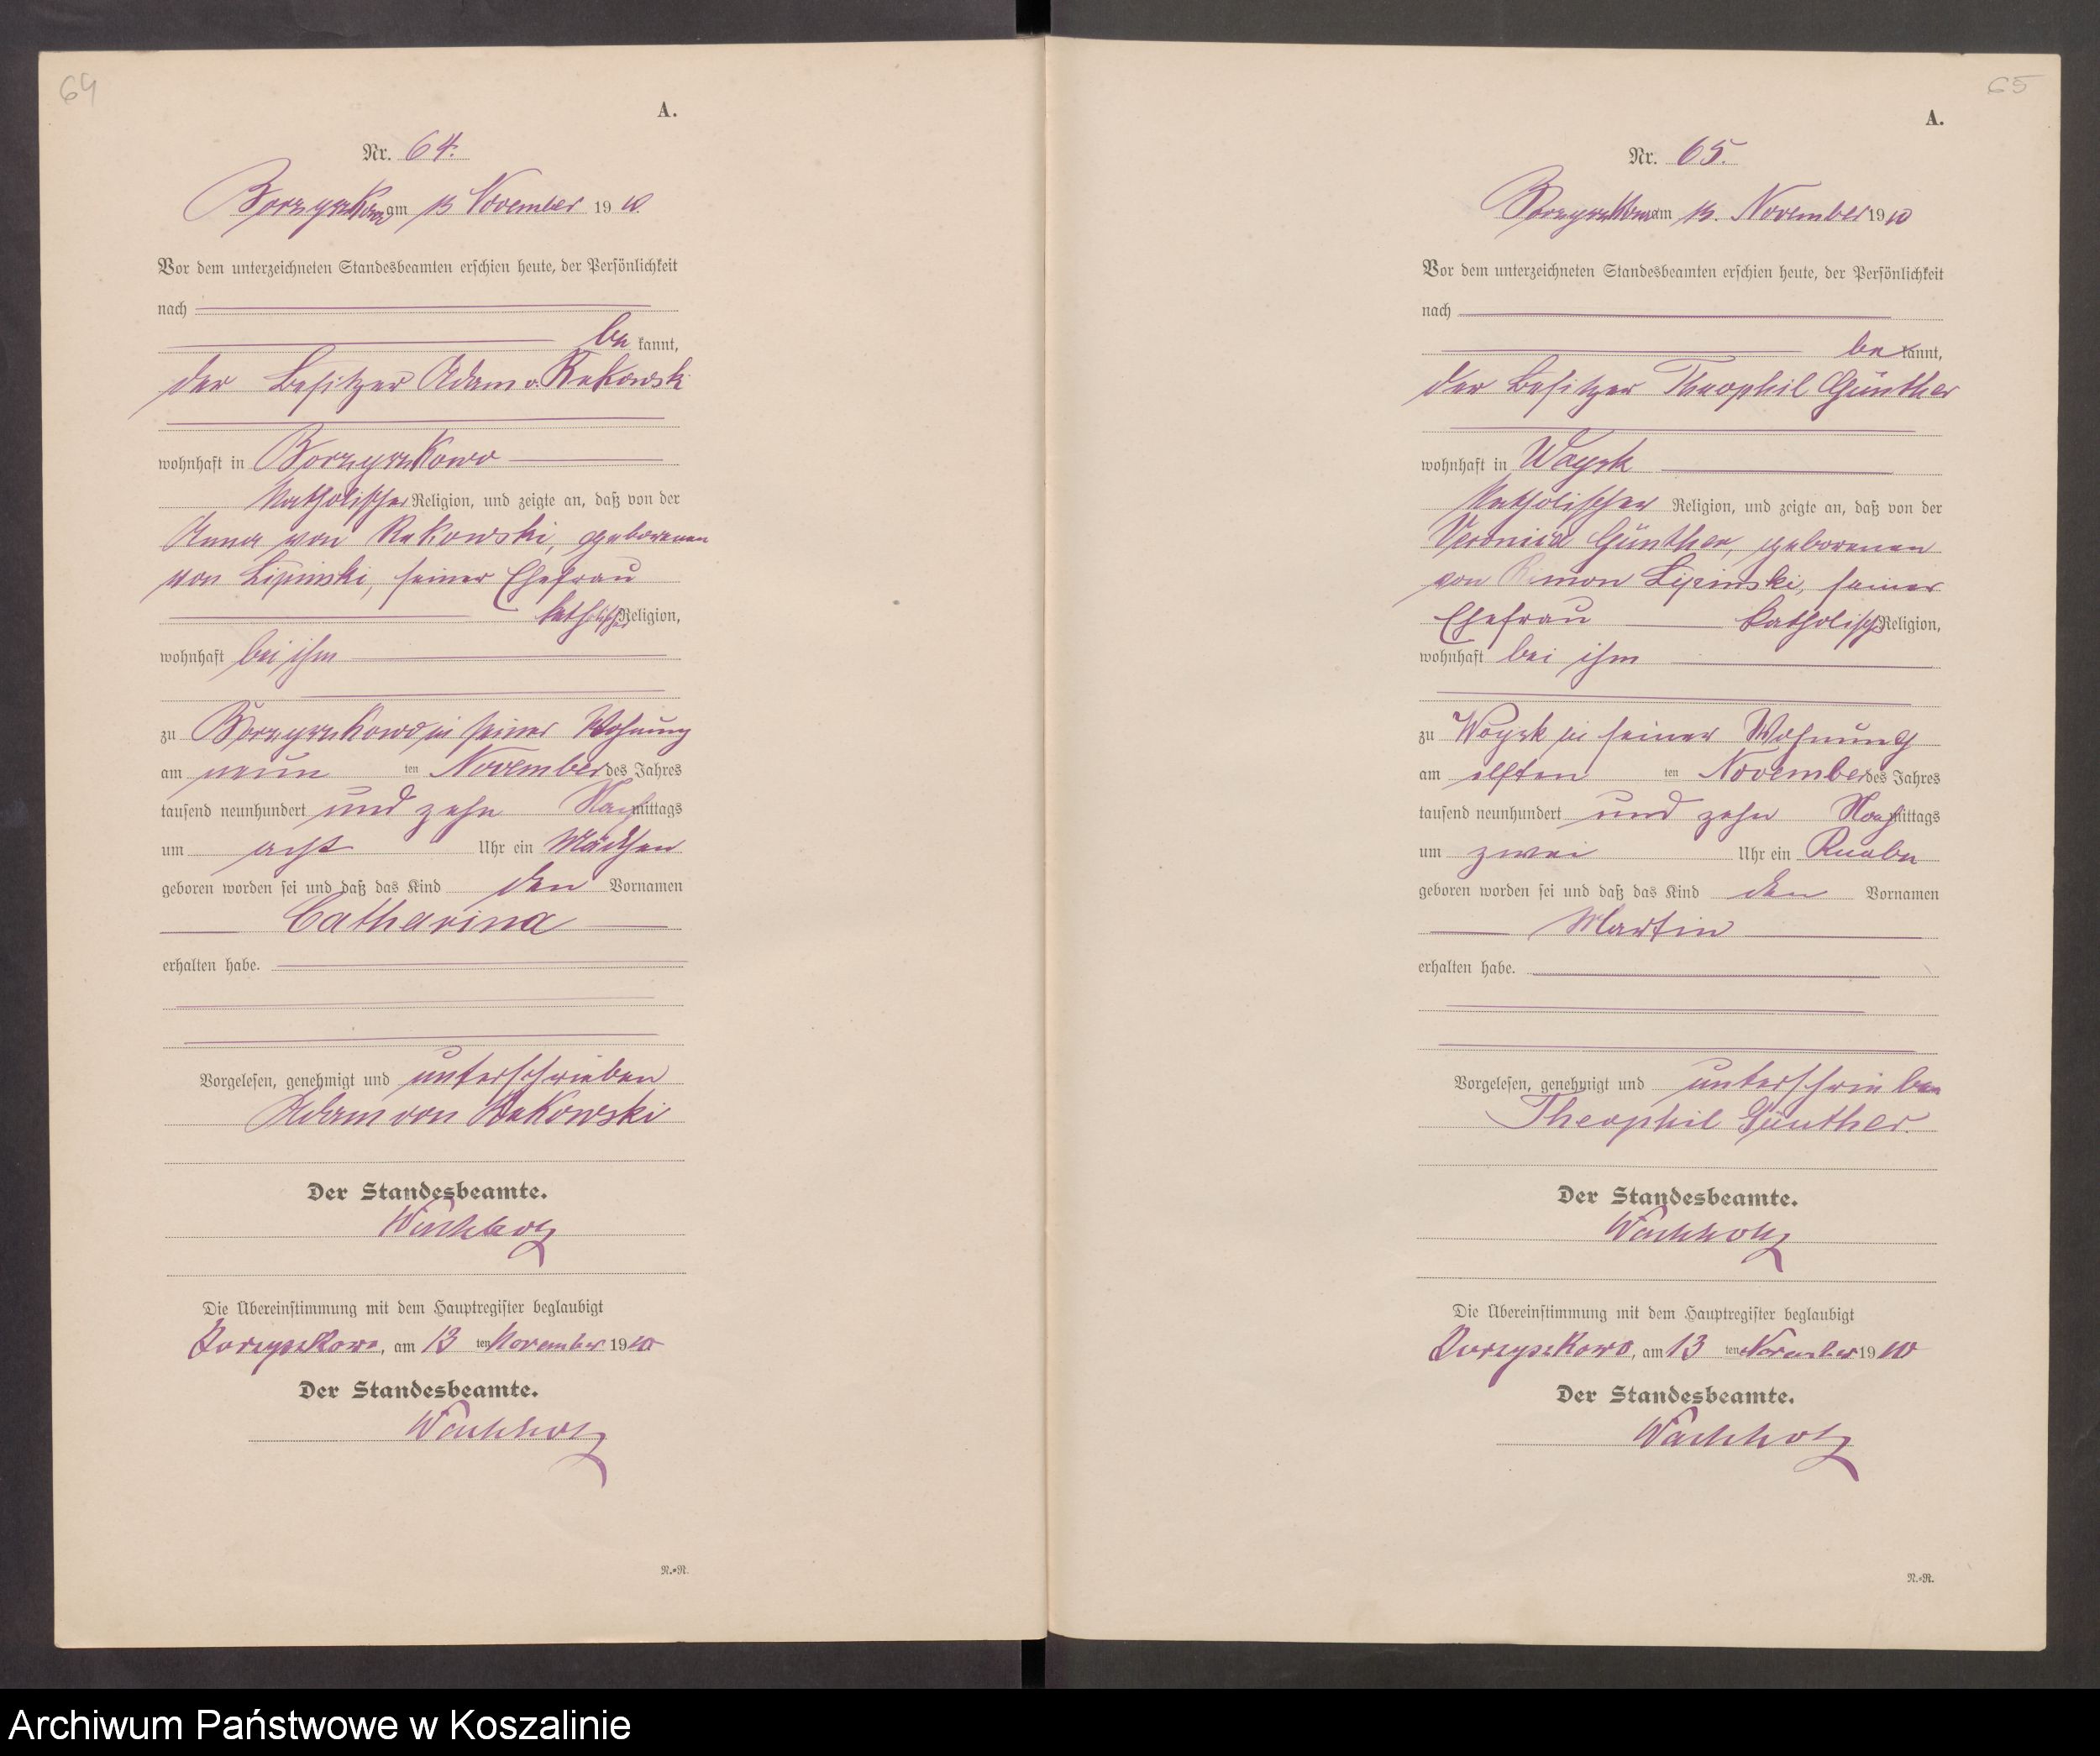 64
A.
Nr. 64.
Borzyszkowo am 13 November 1910.
Vor dem unterzeichneten Standesbeamten erschien heute, der Persönlichkeit
nach
be kannt,
der Besitzer Adam v. Rekowski
wohnhaft in Borzyszkowo
katholischer Religion, und zeigte an, daß von der
Anna von Rekowski, geborenen
von Lipinski, seiner Ehefrau
katholischer Religion,
wohnhaft bei ihm
zu Borzyszkowo in seiner Wohnung
am neun ten November des Jahres
tausend neunhundert und zehn Nachmittags
um acht Uhr ein Mädchen
geboren worden sei und daß das Kind den Vornamen
Catharina
erhalten habe.
Vorgelesen, genehmigt und unterschrieben
Adam von Rekowski
Der Standesbeamte.
Wachholz
Die Übereinstimmung mit dem Hauptregister beglaubigt
Borzyszkowo, am 13 ten November 1910
Der Standesbeamte.
Wachholz
R.=R.
65
A.
Nr. 65.
Borzyszkowo am 13. November 1910
Vor dem unterzeichneten Standesbeamten erschien heute, der Persönlichkeit
nach
be kannt,
der Besitzer Theophil Günther
wohnhaft in Woysk
katholischer Religion, und zeigte an, daß von der
Veronica Günther, geborenen
von Lipinski, seiner
Ehefrau katholisch Religion,
wohnhaft bei ihm
zu Woysk in seiner Wohnung
am elften ten November des Jahres
tausend neunhundert und zehn Nachmittags
um zwei Uhr ein Knabe
geboren worden sei und daß das Kind den Vornamen
Martin
erhalten habe.
Vorgelesen, genehmigt und unterschrieben
Theophil Günther.
Der Standesbeamte.
Wachholz
Die Übereinstimmung mit dem Hauptregister beglaubigt
Borzyszkowo, am 13 ten November 1910
Der Standesbeamte.
Wachholz
R.=R.
Archiwum Państwowe w Koszalinie